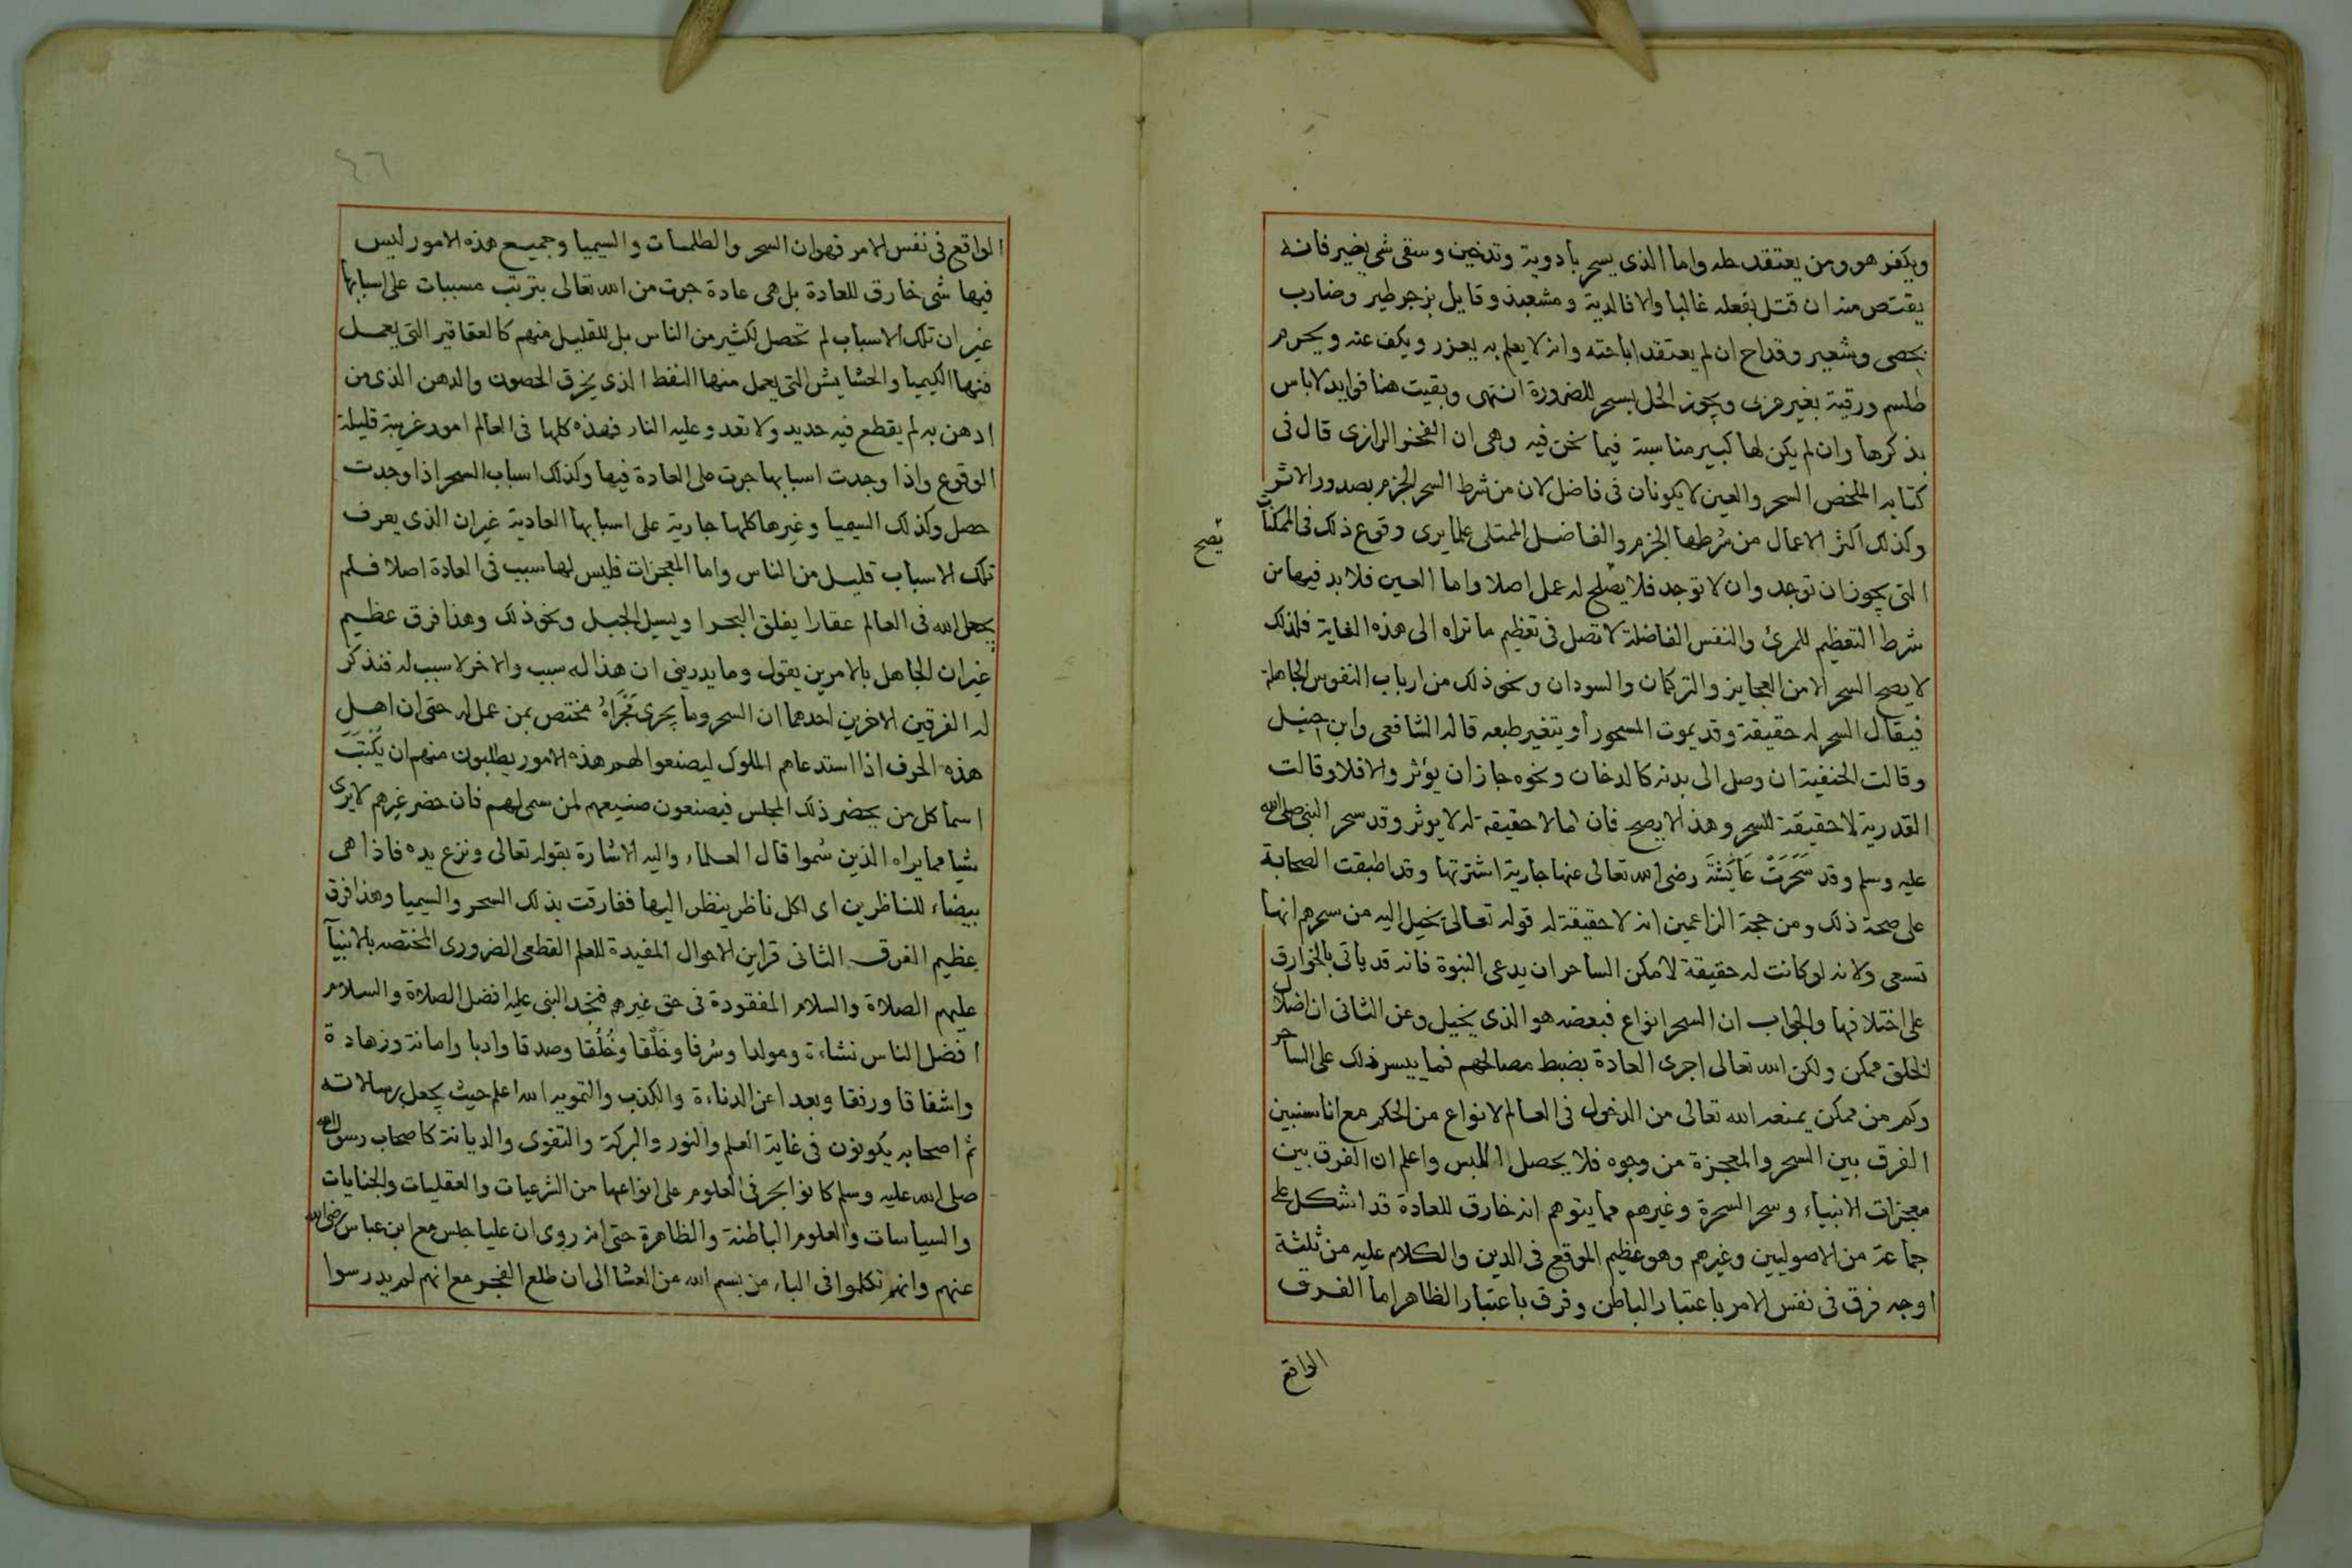 ويكفر هو ومن يعتقد حله واما الذى يسحر بادوية وتدخين وسقى شى يضير فانه
يقتص منه ان قتل بفعله غالبا والا فالدية ومشعبذ وقايل بزجر طير وضارب
بحصى وشعير وقداح ان لم يعتقد اباحته وانه لا يعلم به يعزر ويكف عنه ويحرم
طلسم ورقية بغير عربى ويجوز الحل بسحر للضرورة انتهى وبقيت هنا فوايد لا باس
بذكرها وان لم يكن لها كبير مناسبة فيما نحن فيه وهى ان الفخر الرازى قال فى
كتابه الملخص السحر والعين لا يكونان فى فاضل لان من شرط السحر الجزم بصدور الاثر
وكذلك اكثر الاعمال من شرطها الجزم والفاضل الممتلى علما يرى وقوع ذلك فى الممكنات
التى يجوز ان توجد وان لا توجد فلا يصلح له عمل اصلا واما العين فلا بد فيها من
يصح
شرط التعظيم للمرئ والنفس الفاضلة لا تصل فى تعظيم ما تراه الى هذه الغاية فلذلك
لا يصح السحر الا من العجايز والتركمان والسودان ونحو ذلك من ارباب النفوس الجاهلة
فيقال السحر له حقيقة وقد يموت المسحور او يتغير طبعه قاله الشافعى وابن حنبل
وقالت الحنفية ان وصل الى بدنه كالدخان ونحوه جاز ان يؤثر والا فلا وقالت
القدرية لا حقيقة للسحر وهذا لا يصح فان ما لا حقيقة له لا يوثر وقد سحر النبى صلى الله
عليه وسلم وقد سَحَرَتْ عَايَشَةَ رضى الله تعالى عنها جارية اشترتها وقد اطبقت الصحابة
على صحة ذلك ومن حجة الزاعمين انه لا حقيقة له قوله تعالى يخيل اليه من سحرهم انها
تسعى ولانه لو كانت له حقيقة لامكن الساحر ان يدعى النبوة فانه قد ياتى بالخوارق
على اختلافها والجواب ان السحر انواع فبعضه هو الذى يخيل وعن الثانى ان اضلال
الخلق ممكن ولكن الله تعالى اجرى العادة بضبط مصالحهم فما ييسر ذلك على الساحر
وكم من ممكن يمنعه الله تعالى من الدخول فى العالم لانواع من الحكم مع انا سنبين
الفرق بين السحر والمعجزة من وجوه فلا يحصل اللبس واعلم ان الفرق بين
معجزات الانبياء وسحر السحرة وغيرهم مما يتوهم انه خارق للعادة قد اشكل على
جماعة من الاصوليين وغيرهم وهو عظيم الموقع فى الدين والكلام عليه من ثلثة
اوجه فرق فى نفس الامر باعتبار الباطن وفرق باعتبار الظاهر اما الفرق
الواقع
٤٦
الواقع فى نفس الامر فهو ان السحر والطلمسات والسيميا وجميع هذه الامور ليس
فيها شى خارق للعادة بل هى عادة جرت من الله تعالى بترتب مسببات على اسبابها
غير ان تلك الاسباب لم تحصل لكثير من الناس بل للقليل منهم كالعقاقير التى يعمل
منها الكيميا والحشايش التى يعمل منها النفط الذى يخرق الحصون والدهن الذى من
ادهن به لم يقطع فيه حديد ولا تعدو عليه النار فهذه كلها فى العالم امور غريبة قليلة
الوقوع واذا وجدت اسبابها جرت على العادة فيها وكذلك اسباب السحر اذا وجدت
حصل وكذلك السيميا وغيرها كلها جارية على اسبابها العادية غير ان الذى يعرف
تلك الاسباب قليل من الناس واما المعجزات فليس لها سبب فى العادة اصلا فلم
يجعل الله فى العالم عقارا يفلق البحر او يسيل الجبل ونحو ذلك وهذا فرق عظيم
غير ان الجاهل بالامرين يقول وما يدرينى ان هذا له سبب والاخر لا سبب له فنذكر
له الفرقين الاخرين احدهما ان السحر وما يجرى مَجْرَاهُ مختص بمن عمل له حتى ان اهل
هذه الحرف اذا استدعاهم الملوك ليصنعوا لهم هذه الامور يطلبون منهم ان يُكْتَبَ
اسما كل من يحضر ذلك المجلس فيصنعون صنيعهم لمن سمى لهم فان حضر غيرهم لا يرى
شيا مما يراه الذين سُموا قال العلماء واليه الاشارة بقوله تعالى ونزع يده فاذا هى
بيضاء للناظرين اى لكل ناظر ينظر اليها ففارقت بذلك السحر والسيميا وهذا فرق
عظيم الفرق الثانى قراين الاحوال المفيدة للعلم القطعى الضرورى المختصه بالانبيآ
عليهم الصلاة والسلام المفقودة فى حق غيرهم فتجد النبى عليه افضل الصلاة والسلام
افضل الناس نشاءة ومولدا وشرفا وخَلْقا وخُلُقا وصدقا وادبا وامانة وزهادة
واشفاقا ورفقا وبعدا عن الدناءة والكذب والتمويه الله اعلم حيث يجعل رسالاته
ثم اصحابه يكونون فى غاية العلم والنور والبركة والتقوى والديانة كاصحاب رسول الله
صلى الله عليه وسلم كانوا بحر فى العلوم على انواعها من الشرعيات والعقليات والجنايات
والسياسات والعلوم الباطنة والظاهرة حتى انه روى ان عليا جلس مع ابن عباس رضى الله
عنهم وانهم تكلموا فى الباء من بسم الله من العشا الى ان طلع الفجر مع انهم لم يدرسوا